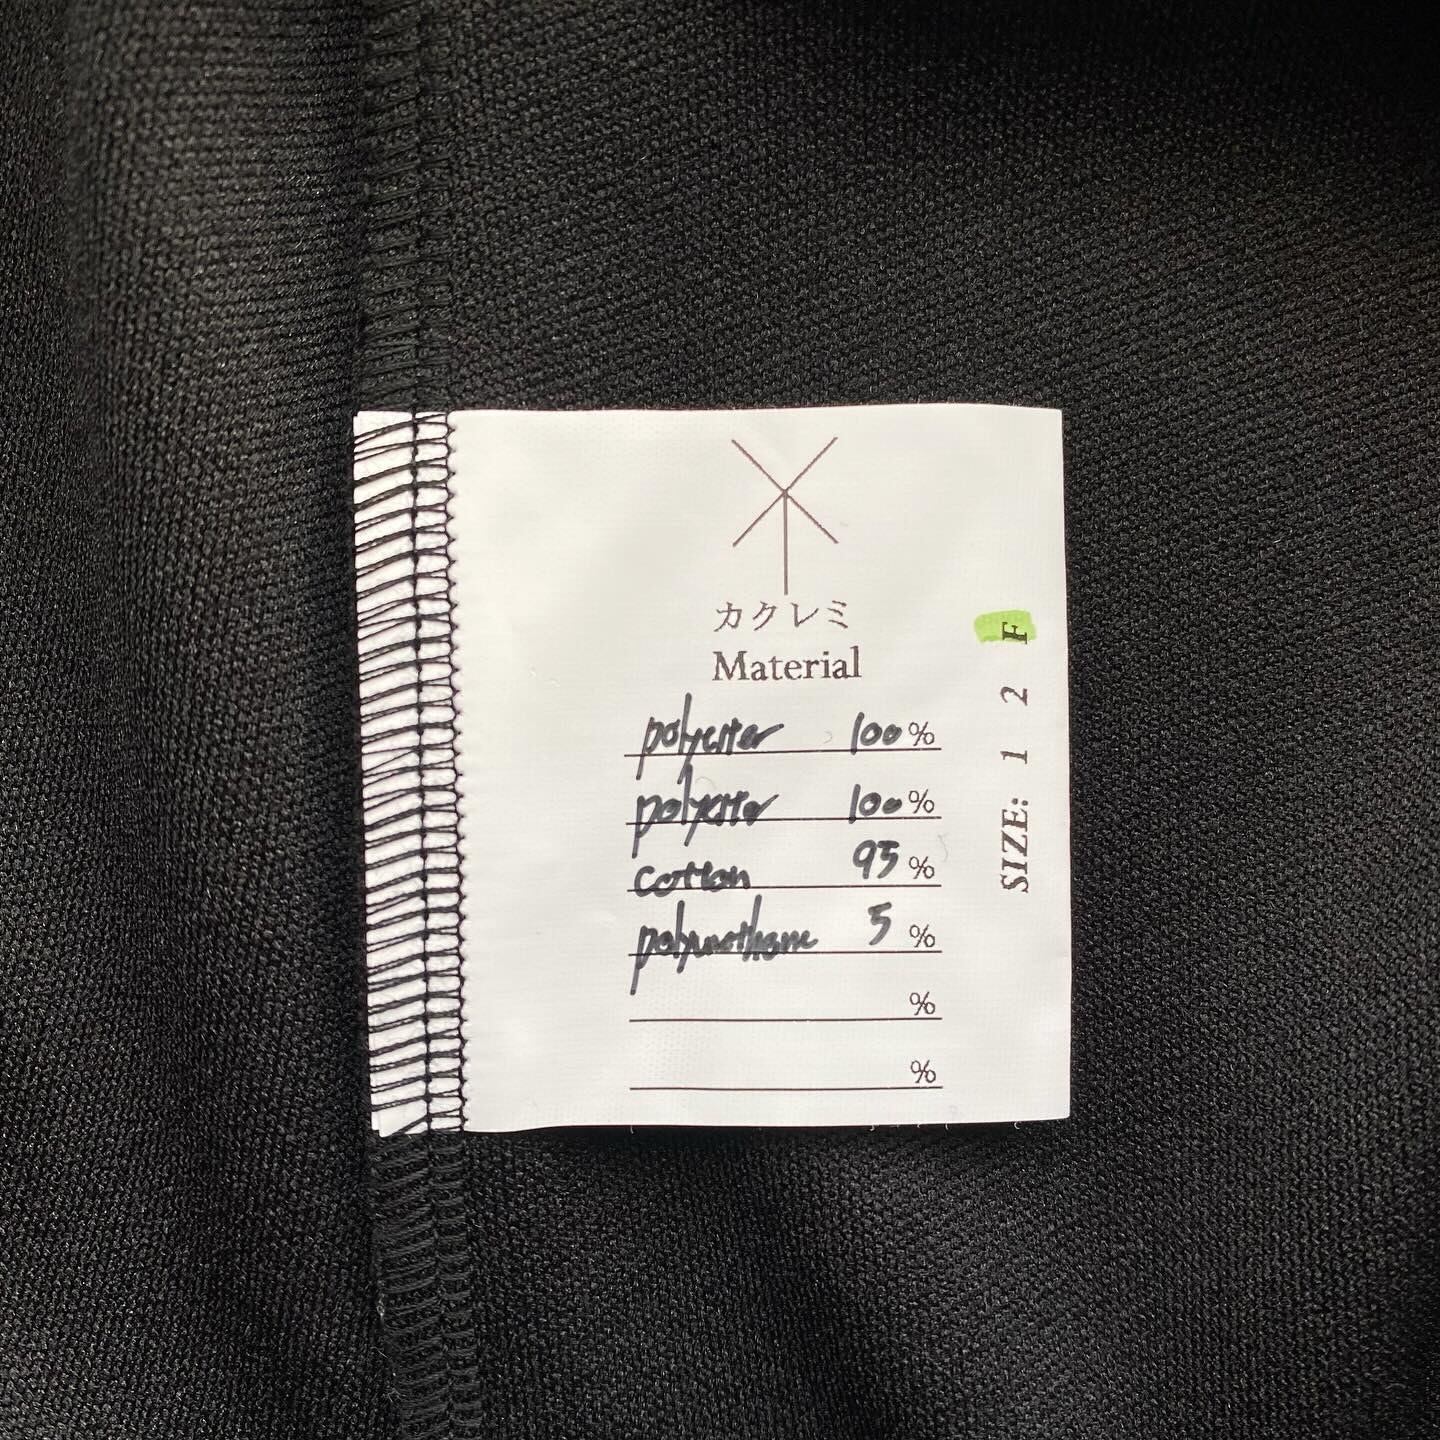 カクレミ
Material
polyester 100%
polyester 100%
cotton 95%
polyurethane 5%
%
%
SIZE: 1 2 F